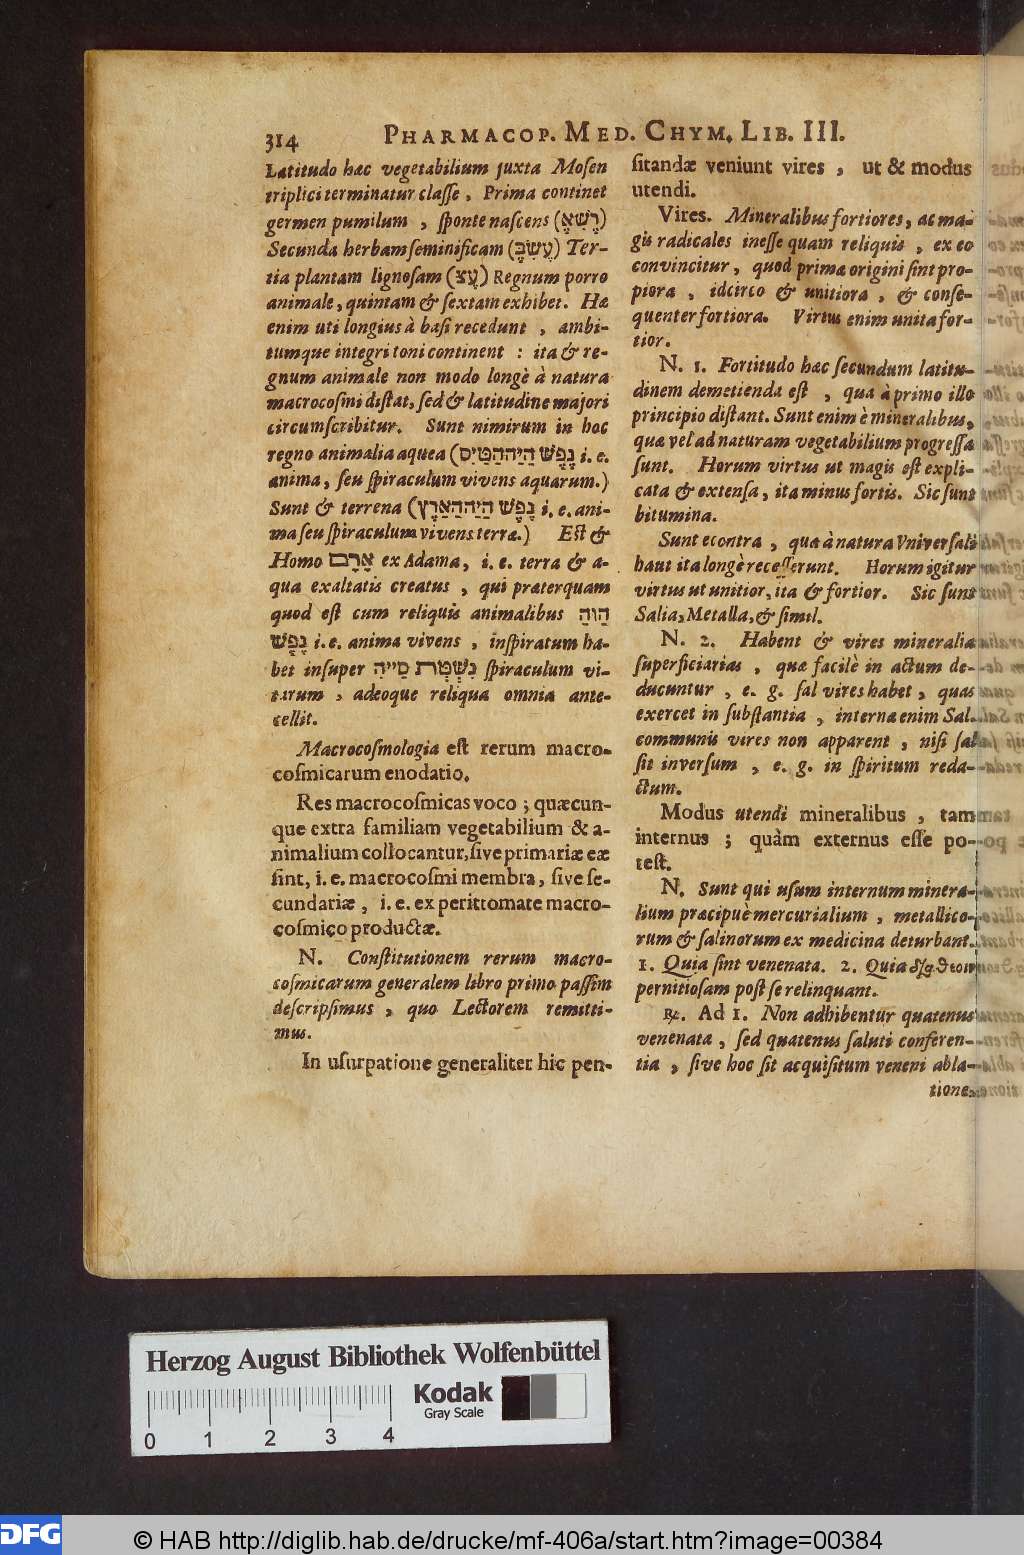 314 PHARMACOP. MED. CHYM. LIB. III.
Latitudo hæc vegetabilium juxta Mosen
triplici terminatur classe, Prima continet
germen pumilum, sponte nascens (רֶשֶׁא)
Secunda herbam seminificam (עֵשֶׂב) Ter-
tia plantam lignosam (עֵצ) Regnum porro
animale, quintam & sextam exhibet. Hæ
enim uti longius à basi recedunt, ambi-
tumque integri toni continent : ita & re-
gnum animale non modo longè à natura
macrocosmi distat, sed & latitudine majori
circumscribitur. Sunt nimirum in hoc
regno animalia aquea ( i. e.
anima, seu spiraculum vivens aquarum.)
Sunt & terrena ( i. e. ani-
ma seu spiraculum vivens terræ.) Est &
Homo אָדָם ex Adama, i. e. terra & a-
qua exaltatis creatus, qui præterquam
quod est cum reliquis animalibus
נֶפֶשׁ i. e. anima vivens, inspiratum ha-
bet insuper spiraculum vi-
tarum, adeoque reliqua omnia ante-
cellit.
Macrocosmologia est rerum macro-
cosmicarum enodatio.
Res macrocosmicas voco; quæcun-
que extra familiam vegetabilium & a-
nimalium collocantur, sive primariæ eæ
sint, i. e. macrocosmi membra, sive se-
cundariæ, i. e. ex perittomate macro-
cosmico productæ.
N. Constitutionem rerum macro-
cosmicarum generalem libro primo passim
descripsimus, quo Lectorem remitti-
mus.
In usurpatione generaliter hic pen-
sitandæ veniunt vires, ut & modus
utendi.
Vires. Mineralibus fortiores, ac ma-
gis radicales inesse quam reliquis, ex eo
convincitur, quod primæ origini sint pro-
piora, idcirco & unitiora, & conse-
quenter fortiora. Virtus enim unita for-
tior.
N. 1. Fortitudo hæc secundum latitu-
dinem demetienda est, qua à primo illo
principio distant. Sunt enim è mineralibus,
quæ vel ad naturam vegetabilium progressa
sunt. Horum virtus ut magis est expli-
cata & extensa, ita minus fortis. Sic sunt
bitumina.
Sunt econtra, quæ à natura Universali
haut ita longè recesserunt. Horum igitur
virtus ut unitior, ita & fortior. Sic sunt
Salia, Metalla, & simil.
N. 2. Habent & vires mineralia
superficiarias, quæ facilè in actum de-
ducuntur, e. g. sal vires habet, quas
exercet in substantia, internæ enim Sal.
communis vires non apparent, nisi sal
sit inversum, e. g. in spiritum reda-
ctum.
Modus utendi mineralibus, tam
internus; quàm externus esse po-
test.
N. Sunt qui usum internum minera-
lium præcipuè mercurialium, metallico-
rum & salinorum ex medicina deturbant.
1. Quia sint venenata. 2. Quia
pernitiosam post se relinquant.
℞. Ad 1. Non adhibentur quatenus
venenata, sed quatenus saluti conferen-
tia, sive hoc sit acquisitum veneni abla-
tione,
Herzog August Bibliothek Wolfenbüttel
Kodak
Gray Scale
0 1 2 3 4
DFG © HAB http://diglib.hab.de/drucke/mf-406a/start.htm?image=00384